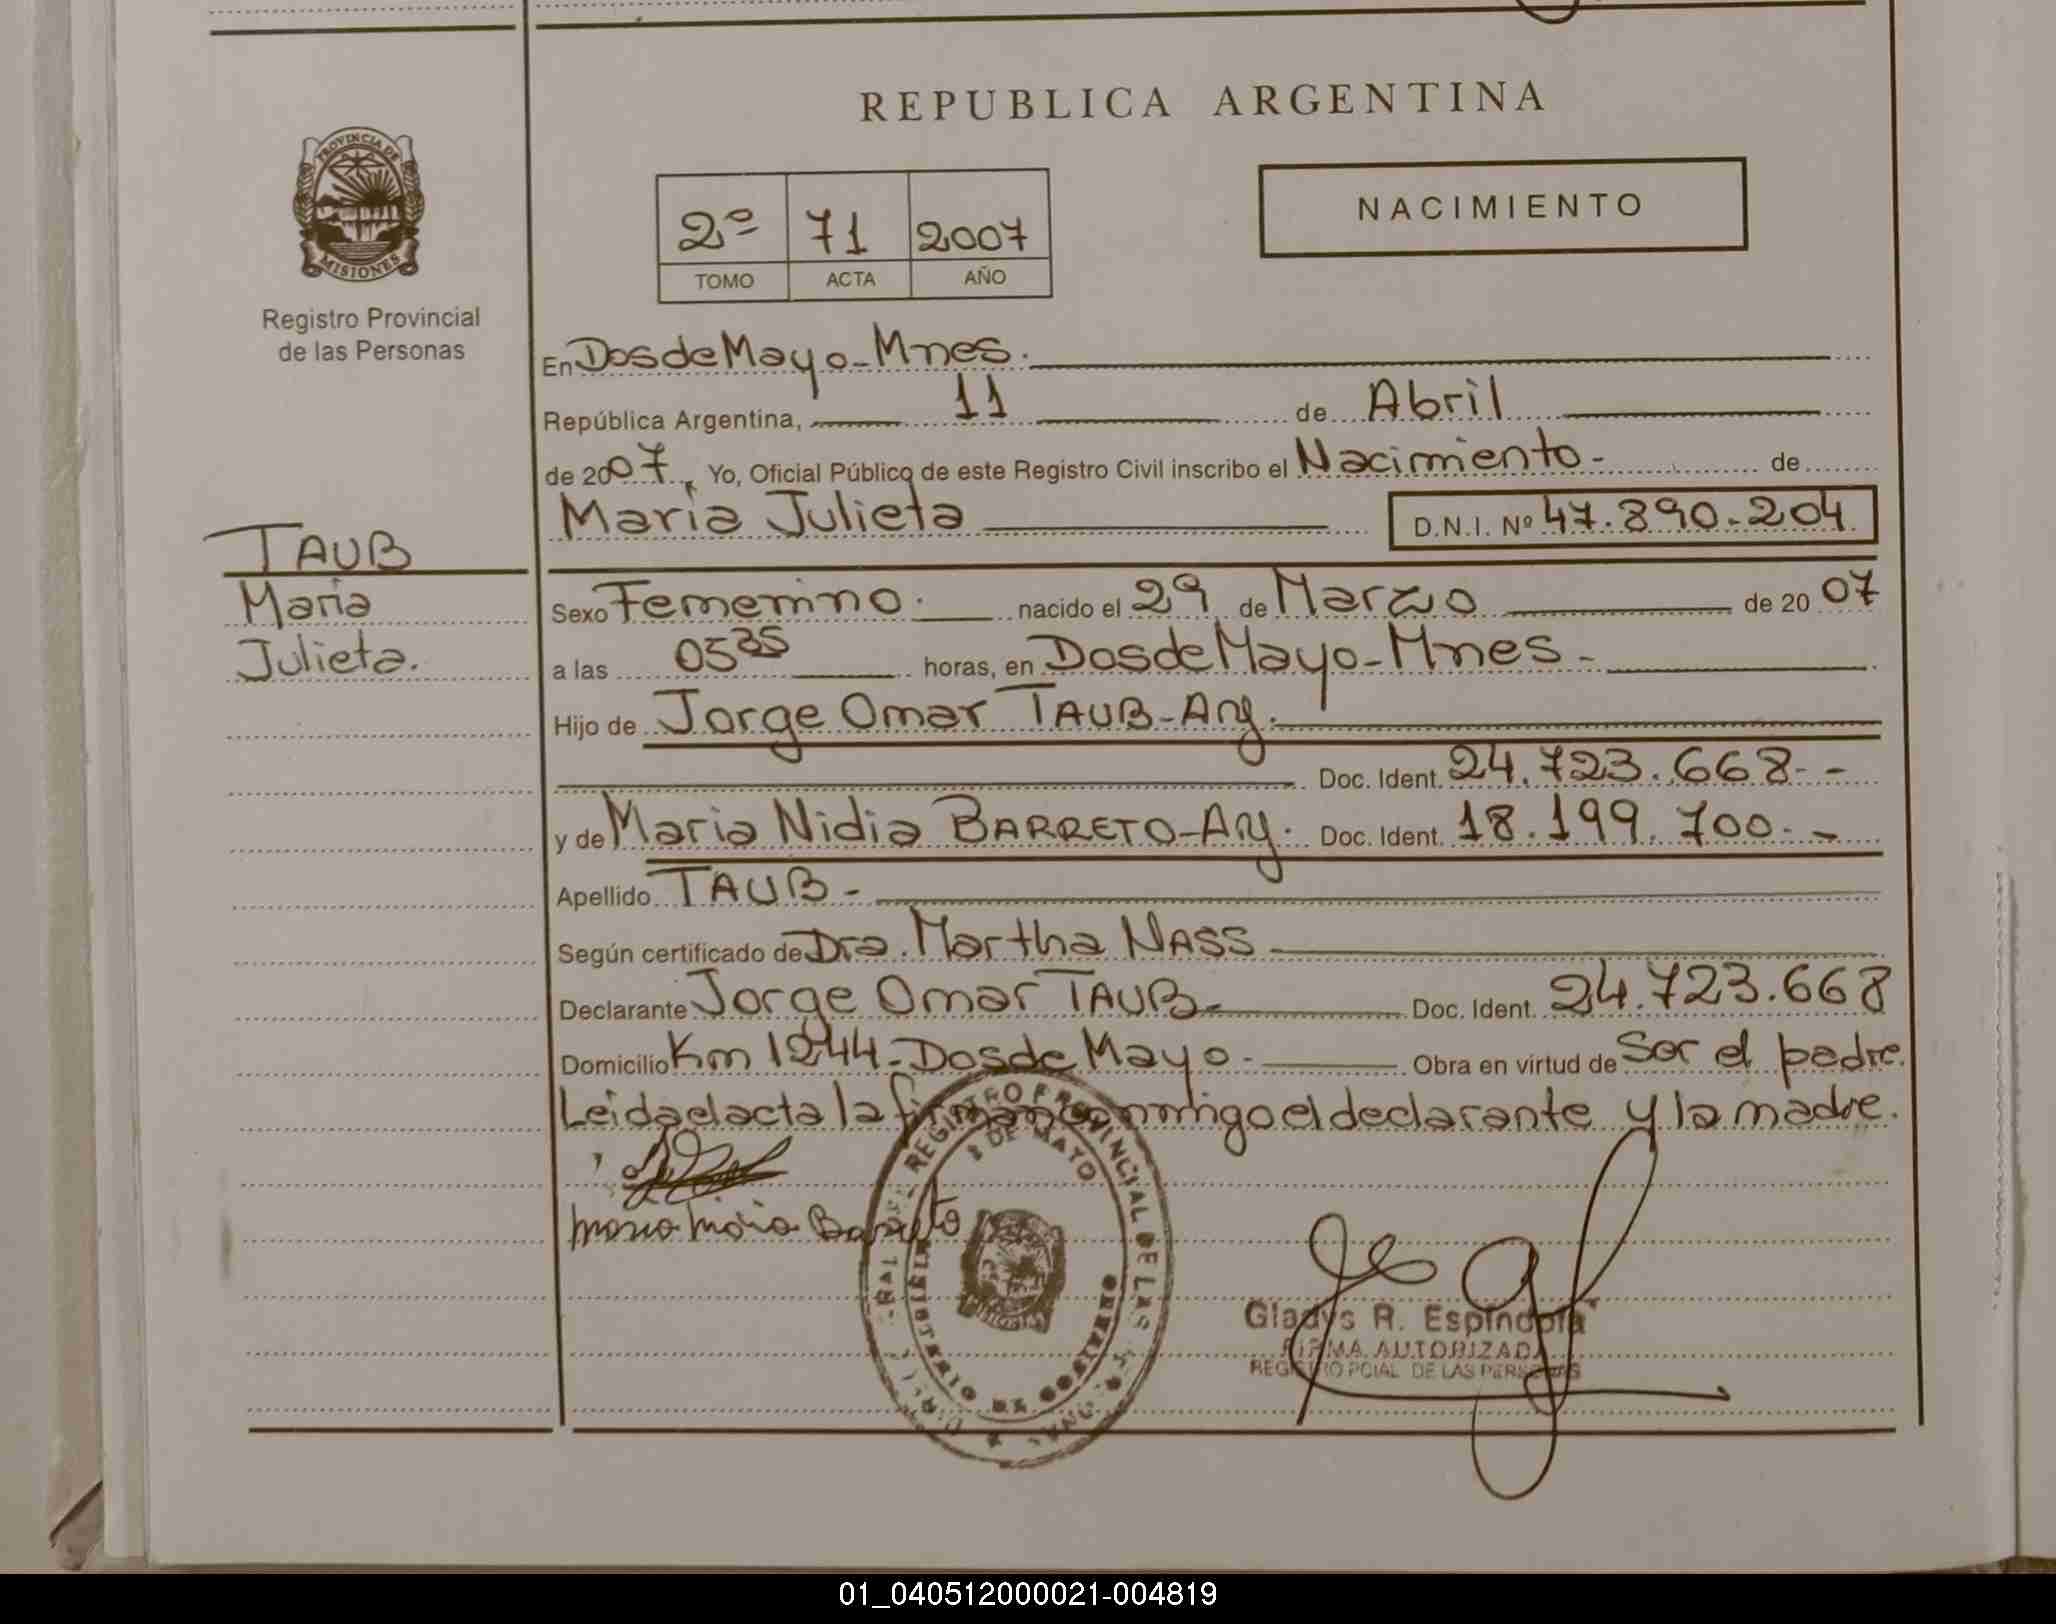 REPUBLICA ARGENTINA
PROVINCIA DE
MISIONES
Registro Provincial
de las Personas
2º 71 2007
TOMO ACTA AÑO
NACIMIENTO
En Dos de Mayo - Mnes.
República Argentina, 11 de Abril
de 2007, Yo, Oficial Público de este Registro Civil inscribo el Nacimiento - de
Maria Julieta D.N.I. Nº 47.890.204
TAUB
Maria
Julieta.
Sexo Femenino. nacido el 29 de Marzo de 2007
a las 05 35 horas, en Dos de Mayo - Mnes -
Hijo de Jorge Omar TAUB - Arg.
Doc. Ident. 24.723.668 - -
y de Maria Nidia BARRETO - Arg. Doc. Ident. 18.199.700. -
Apellido TAUB -
Según certificado de Dra. Martha NASS
Declarante Jorge Omar TAUB - Doc. Ident. 24.723.668
Domicilio Km 1244 - Dos de Mayo - Obra en virtud de Ser el padre.
Leida el acta la firman conmigo el declarante y la madre.
REGISTRO PROVINCIAL DE LAS
2 DE MAYO
Maria Nidia Barreto
Gladys R. Espindola
FIRMA AUTORIZADA
REGISTRO PCIAL DE LAS PERSONAS
01_040512000021-004819